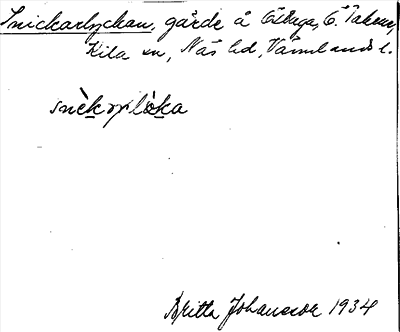 Snickarlyckan, gärde å Ö. Takene,
Kila sn, Näs hd, Värmlands l.
snèkoɼlòka
Britta Johansson 1934